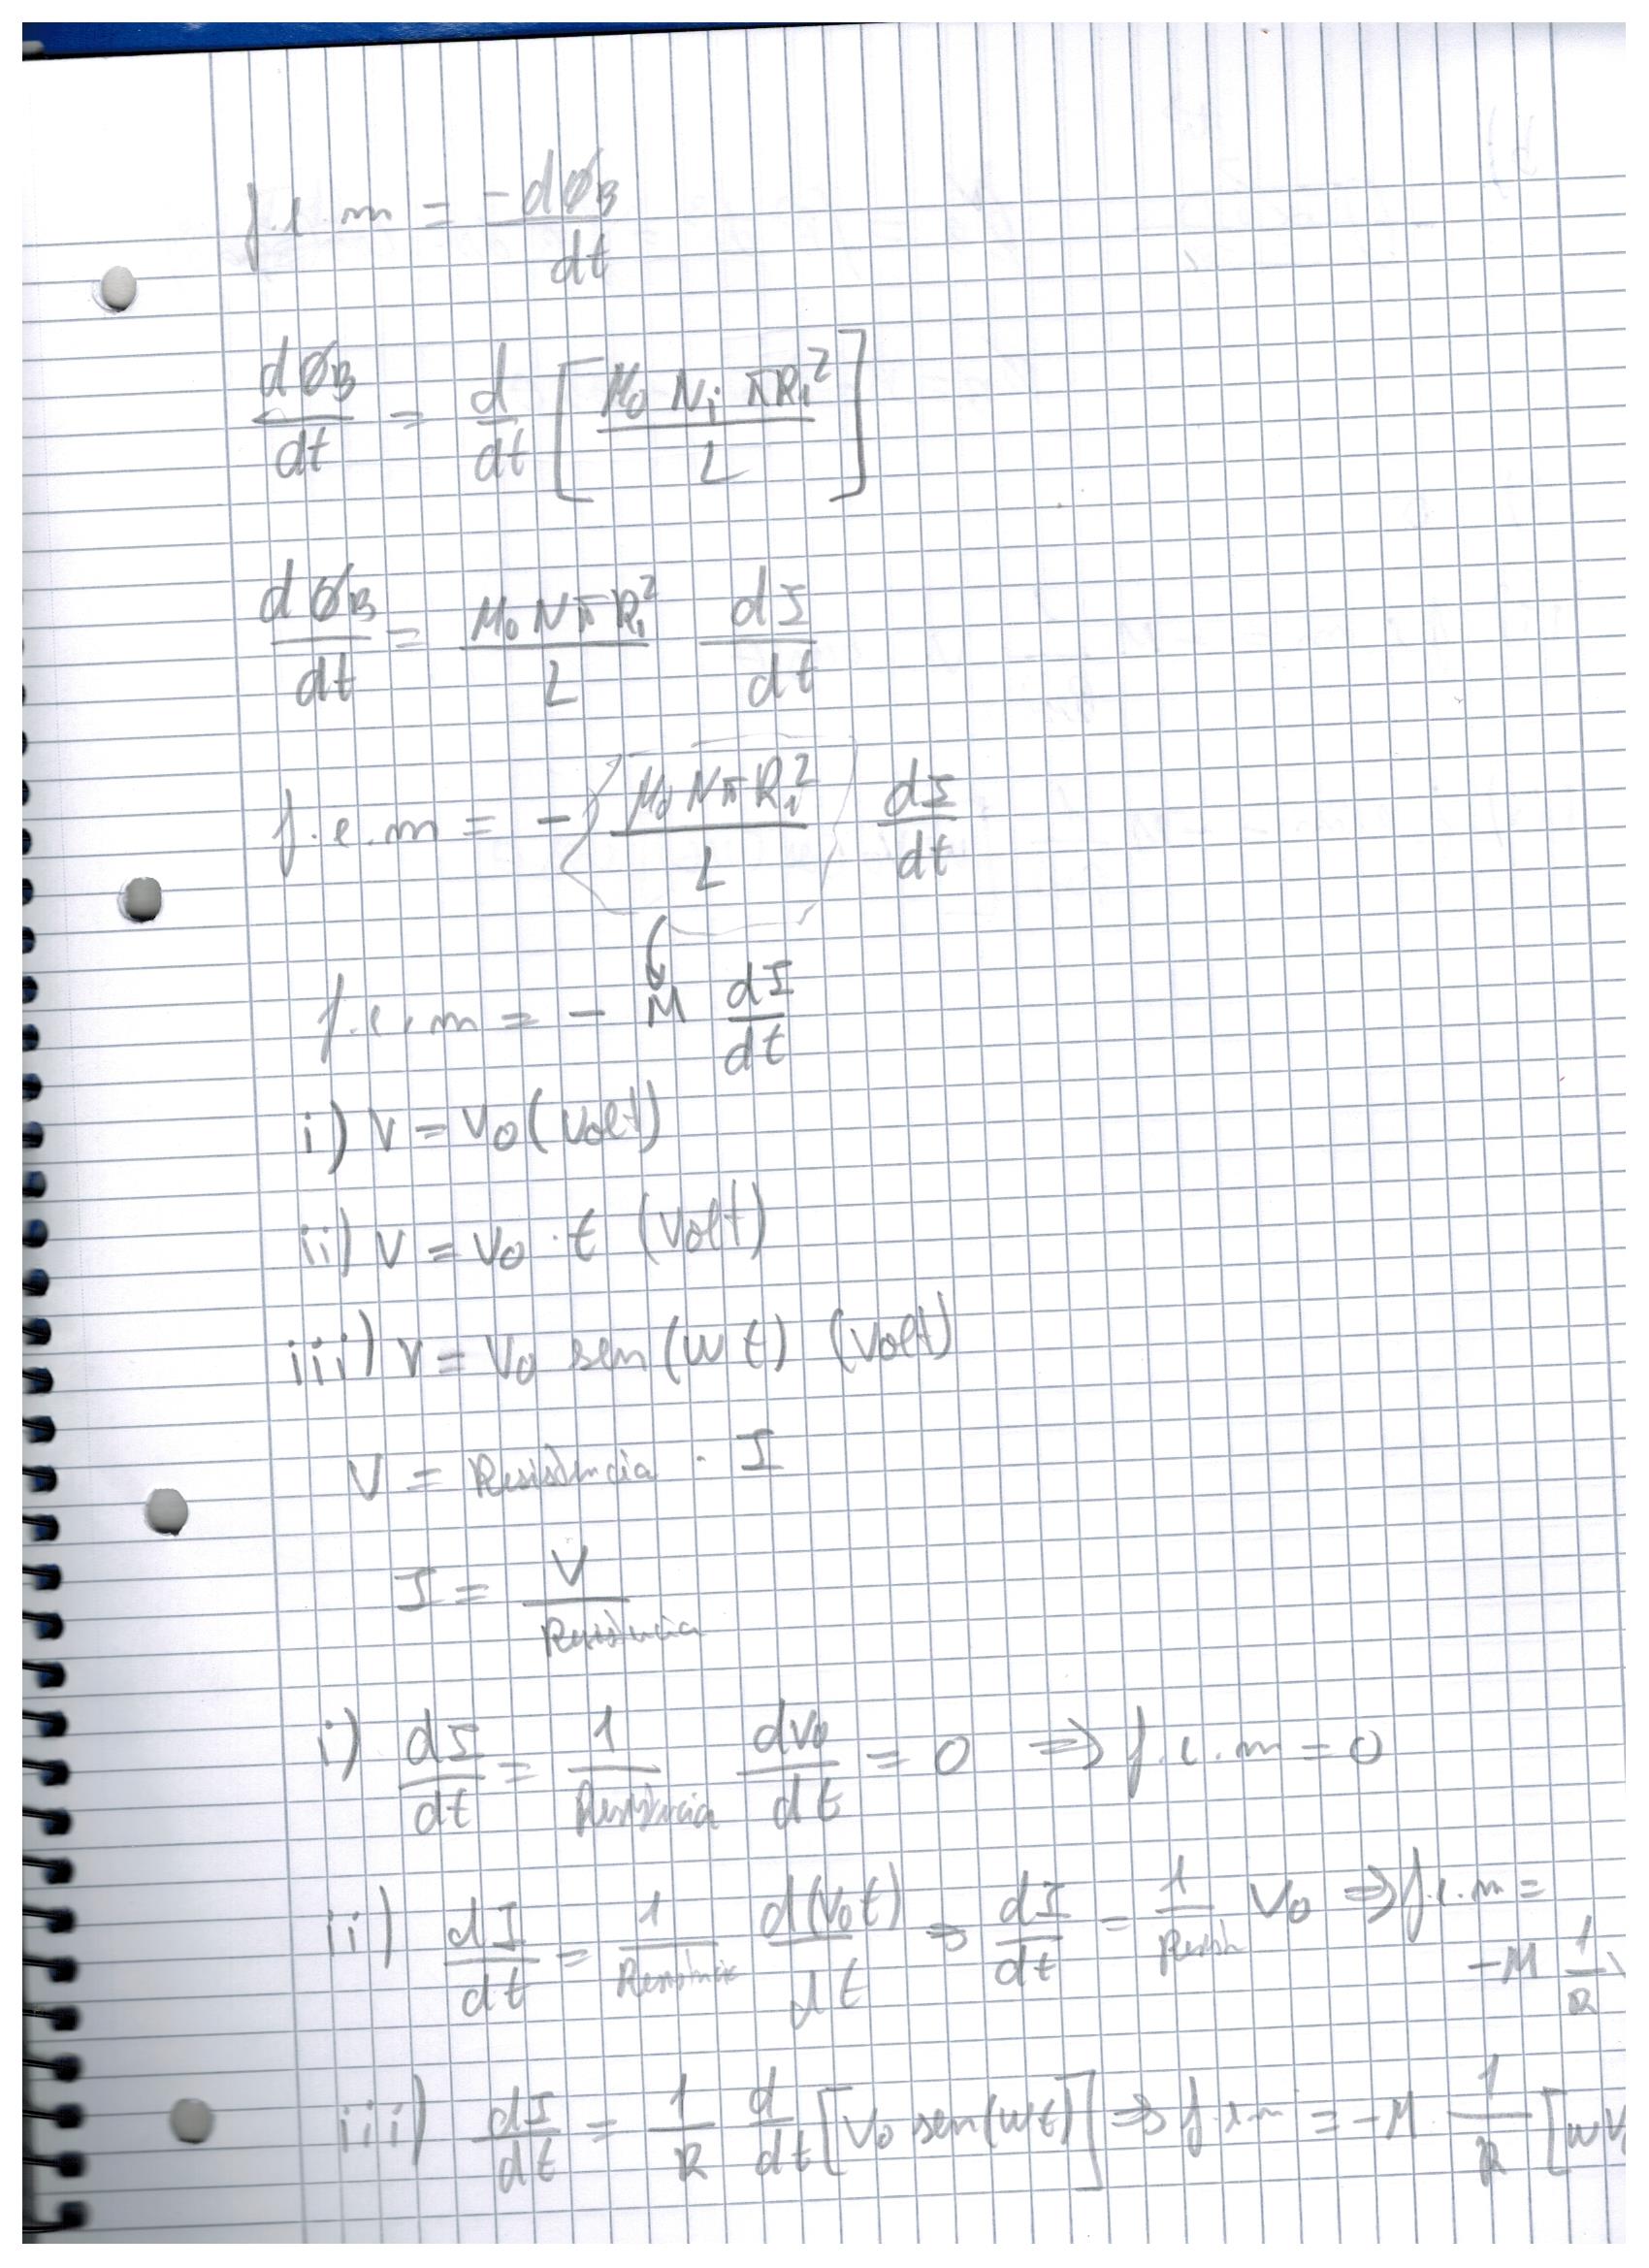 f.e.m = -dØB/dt
dØB/dt = d/dt [μ0 N i π R1²/L]
dØB/dt = μ0 N π R1²/L dI/dt
f.e.m = - μ0 N π R1²/L dI/dt
f.e.m = - M dI/dt
i) V = V0 (Volt)
ii) V = V0 · t (Volt)
iii) V = V0 sen(wt) (Volt)
V = Resistência · I
I = V/Resistência
i) dI/dt = 1/Resistência dV0/dt = 0 => f.e.m = 0
ii) dI/dt = 1/Resistência d(V0t)/dt => dI/dt = 1/Resist V0 => f.e.m =
-M 1/R
iii) dI/dt = 1/R d/dt [V0 sen(wt)] => f.e.m = -M · 1/R [wV